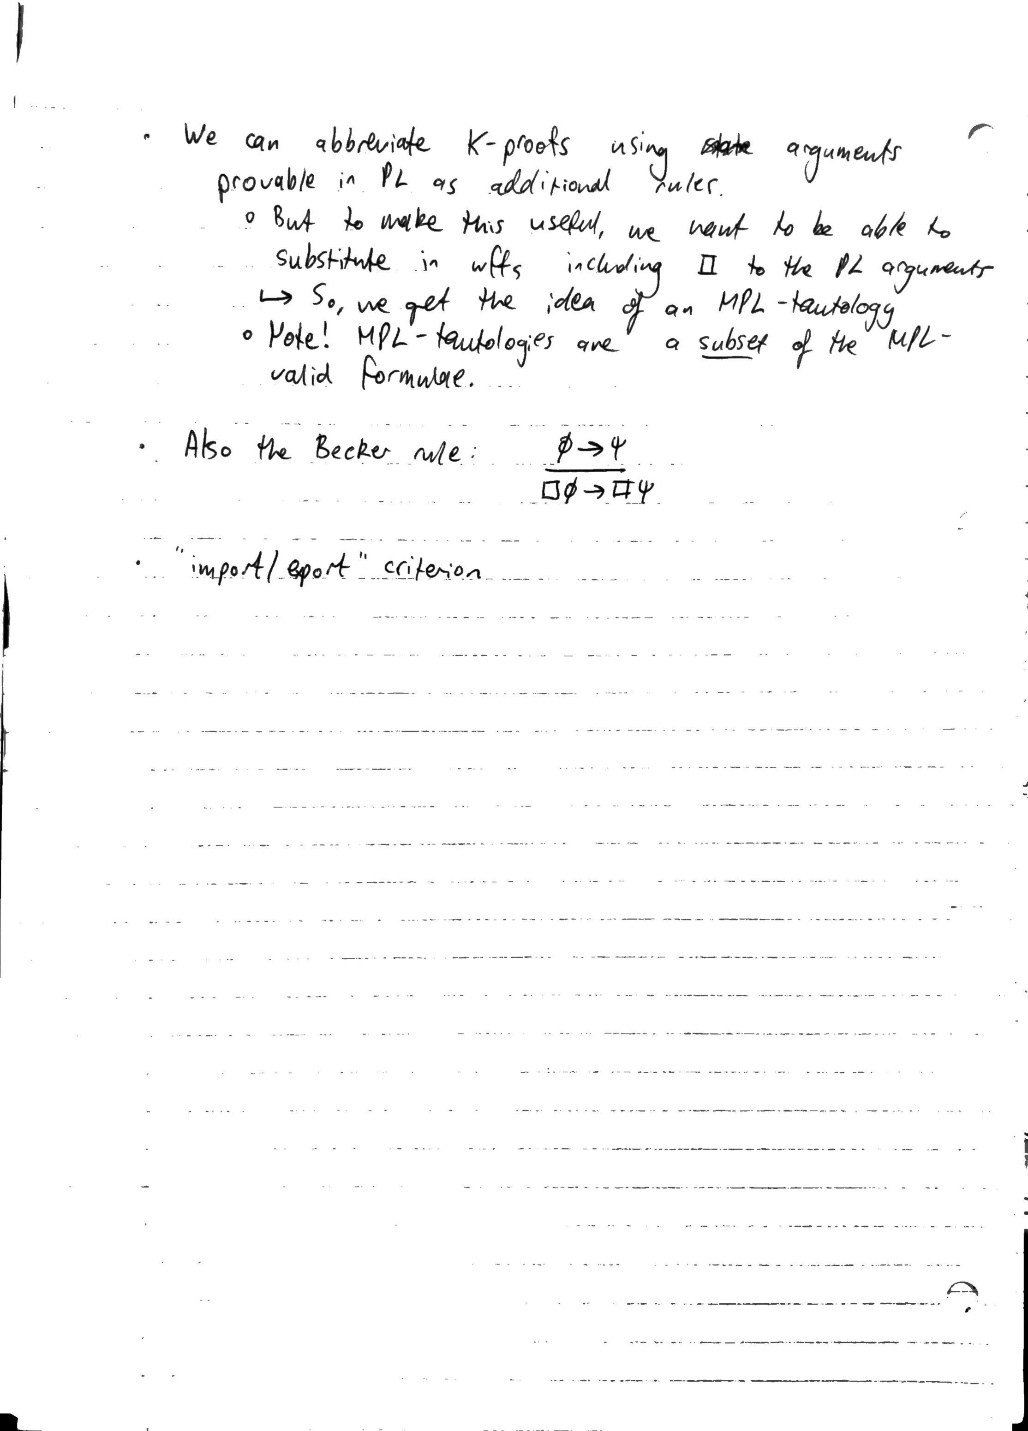 · We can abbreviate K-proofs using arguments
provable in PL as additional rules.
o But to make this useful, we want to be able to
substitute in wffs including □ to the PL arguments
↳ So, we get the idea of an MPL-tautology
o Note! MPL-tautologies are a subset of the MPL-
valid formulae.
· Also the Becker rule: ϕ→ψ
□ϕ→□ψ
· "import/export" criterion